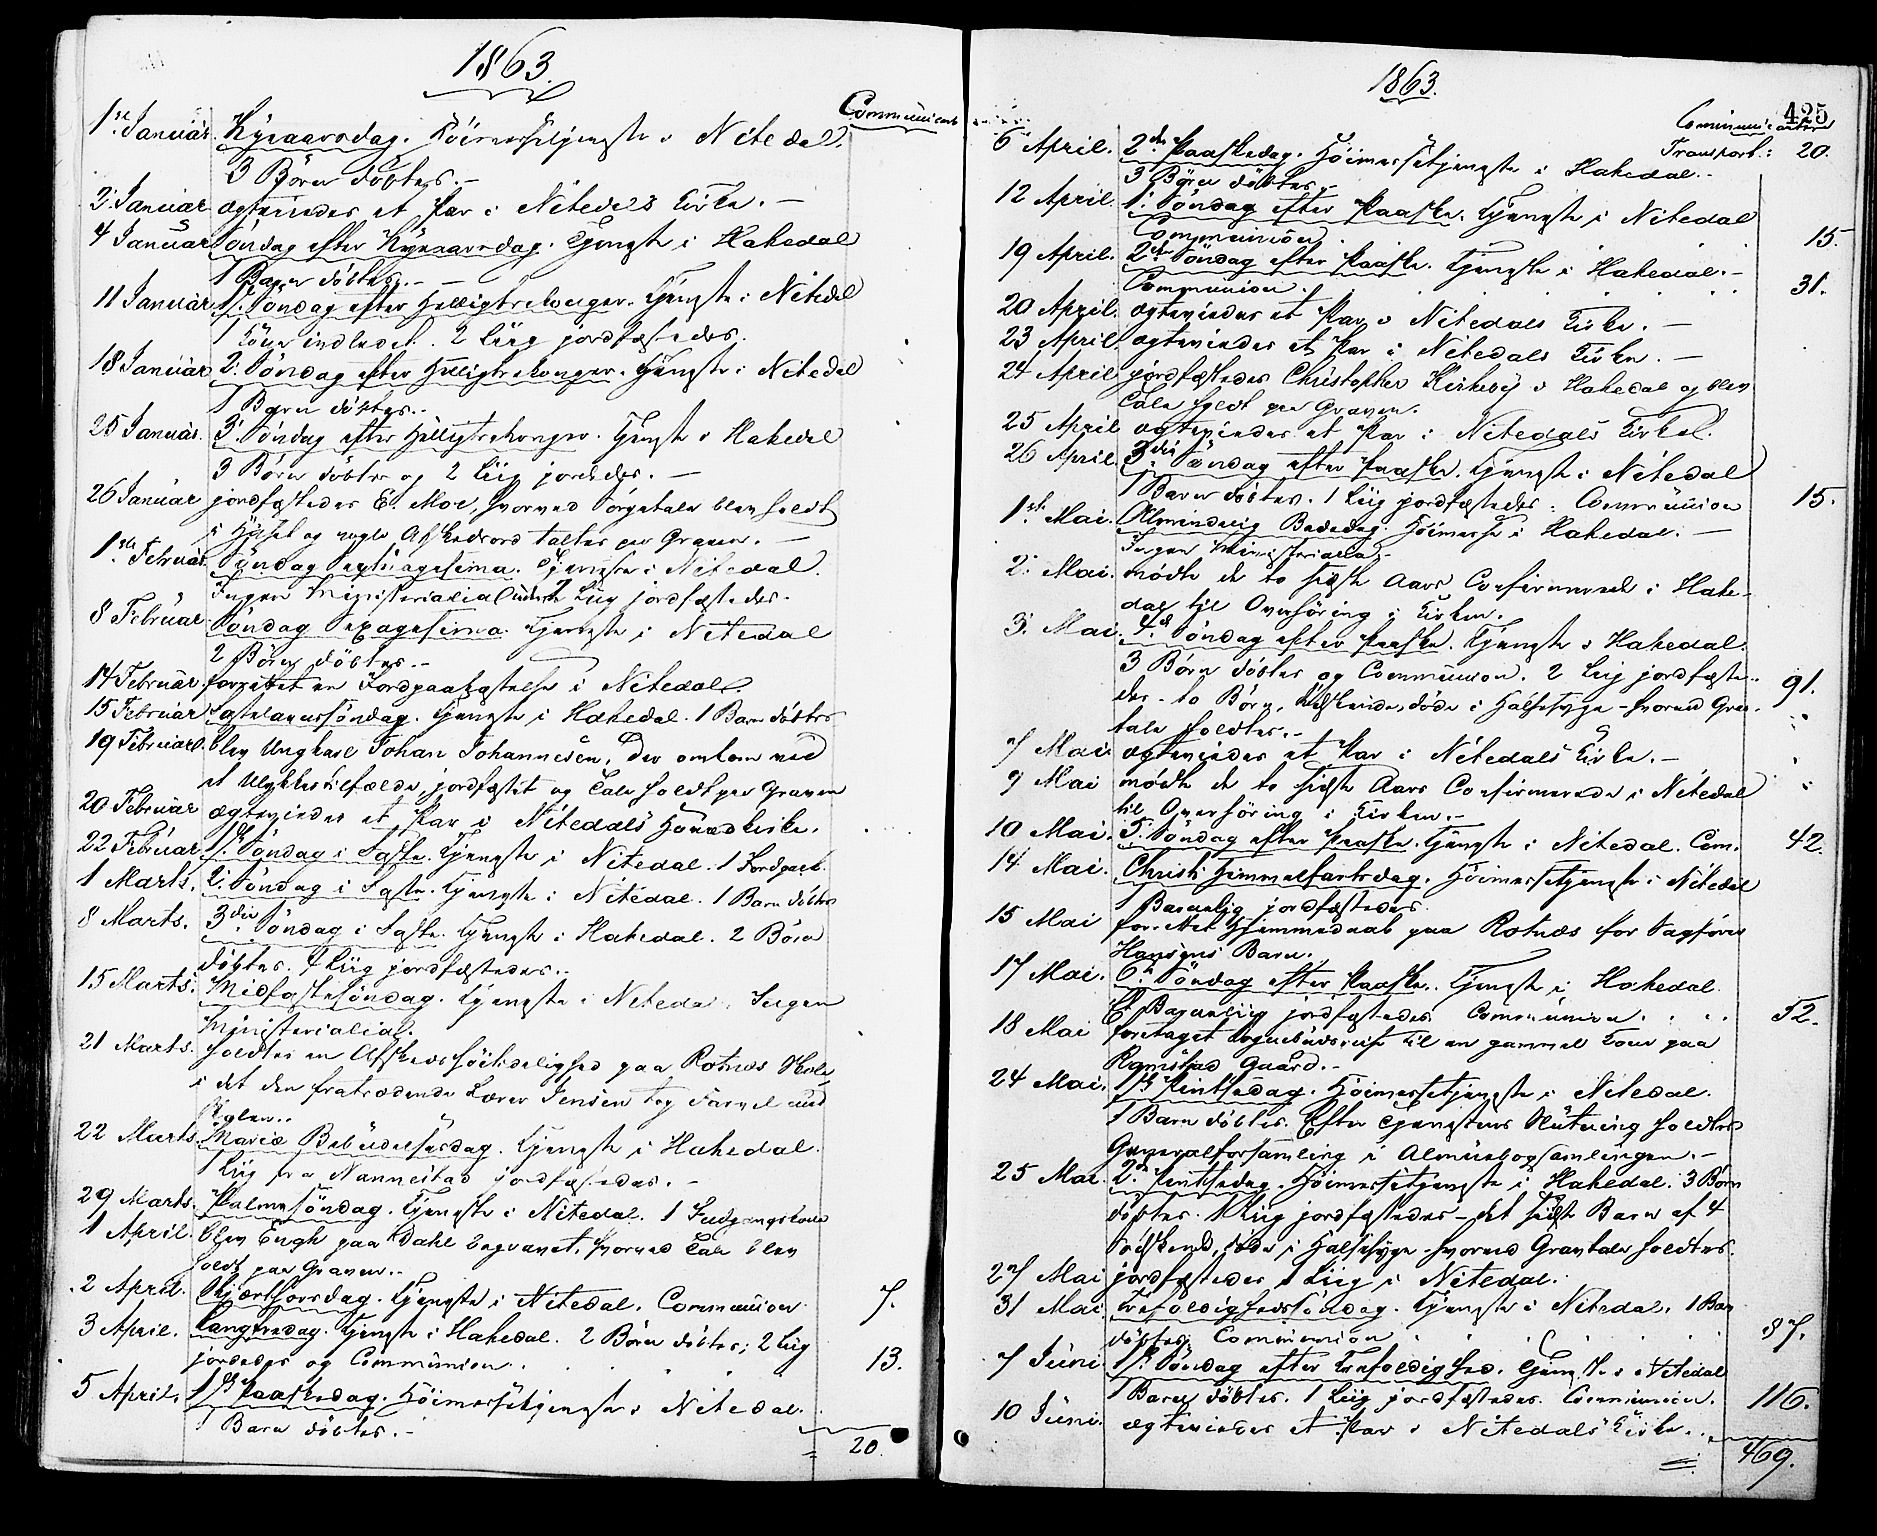 1863.
Communicant
1ste Januar. Nyaarsdag. Höimessetjeneste i Nitedal.
3 Börn döbtes.-
2. Januar ægteviedes et Par i Nitedals Kirke. -
4 Januar Söndag efter Nyaarsdag. Tjeneste i Hakedal
1 Barn döbtes. -
11 Januar 1. Söndag efter Helligtrekonger. Tjeneste i Nitedal
1 Kone indledet. 2 Liig jordfæstedes.
18 Januar 2. Söndag efter Helligtrekonger. Tjeneste i Nitedal
1 Barn döbtes.-
25 Januar. 3. Söndag efter Helligtrekonger. Tjeneste i Hakedal
3 Börn döbtes og 2 Liig jordedes. -
26 Januar jordfæstedes E. Moe, hvorved Sörgetale blev holdt
i Huset og nogle Afskedsord taltes paa Graven. -
1ste Februar Söndag Septuagesima. Tjeneste i Nitedal.
Ingen Ministerialia Liig jordfæstedes.
8 Februar Söndag Sexagesima. Tjeneste i Nitedal
2 Börn döbtes.-
14 Februar. forrettet en Jordpaakastelse i Nitedal.
15 Februar Fastelavnssöndag. Tjeneste i Hakedal. 1 Barn döbtes
19 Februar. blev Ungkarl Johan Johannesen, der omkom ved
et Ulykkestilfælde, jordfæstet og Tale holdt paa Graven
20 Februar ægteviedes et Par i Nitedals Hovedkirke.
22 Februar 1ste Söndag i Faste. Tjeneste i Nitedal. 1 Jordpaak.
1 Marts. 2. Söndag i Faste. Tjeneste i Nitedal. 1 Barn döbtes
8 Marts. 3die Söndag i Faste. Tjeneste i Hakedal. 2 Börn
döbtes. 1 Liig jordfæstedes.-
15 Marts. Midfastesöndag. Tjeneste i Nitedal. Ingen
Ministerialia.
21 Marts. holdtes en Afskedshöitidelighed paa Rotnæs Skole
i det den fratrædende Lærer Jensen tog Farvel med
Skolen.-
22 Marts. Mariæ Bebudelsesdag. Tjeneste i Hakedal.
1 Liig fra Nannestad jordfæstedes. -
29 Marts. Palmesöndag. Tjeneste i Nitedal. 1 Indgangskone
1 April. blev Engh paa Dahl begravet, hvorved Tale blev
holdt paa Graven.-
2 April. Skjærthorsdag. Tjeneste i Nitedal. Communion 7.
3 April. Langfredag. Tjeneste i Hakedal. 2 Börn döbtes; 2 Liig
jordedes og Communion. 13.
5 April. 1ste Paaskedag. Höimessetjeneste i Nitedal.
1 Barn döbtes.- 20.
1863.
425
Communicantere
Transport: 20.
6 April. 2den Paaskedag. Höimessetjeneste i Hakedal.-
3 Börn döbtes.-
12 April. 1. Söndag efter Paaske. Tjeneste i Nitedal
Communion. 15.
19 April. 2den Söndag efter Paaske. Tjeneste i Hakedal.-
Communion. 31.
20 April. ægteviedes et Par i Nitedals Kirke. -
23 April. ægteviedes et Par i Nitedals Kirke. -
24 April jordfæstedes Christopher Kirkeby i Hakedal og blev
Tale holdt paa Graven.
25 April ægteviedes et Par i Nitedals Kirke.
26 April. 3die Söndag efter Paaske. Tjeneste i Nitedal
1 Barn döbtes. 1 Liig jordfæstedes. Communion 15.
1ste Mai. Almindelig Bededag. Höimesse i Hakedal. -
Ingen Ministerialia.-
2. Mai. mödte de to sidste Aars Confirmerede i Hake-
dal til Overhöring i Kirken.
3. Mai. 4de Söndag efter Paaske. Tjeneste i Hakedal.
3 Börn döbtes og Communion. 2 Liig jordfæste- 91.
des - to Börn, Södskende, döde i Halssyge - hvorved Grav-
tale holdtes.-
7 Mai. ægteviedes et Par i Nitedals Kirke. -
9 Mai mödte de to sidste Aars Confirmerede i Nitedal
til Overhöring i Kirken.-
10 Mai. 5. Söndag efter Paaske. Tjeneste i Nitedal. Com. 42.
14 Mai. Christi Himmelfartsdag. Höimessetjeneste i Nitedal
1 Barnelig jordfæstedes.
15 Mai forrettet Hjemmedaab paa Rotnæs for Sagförer
Hansens Barn.
17 Mai. 6te Söndag efter Paaske. Tjeneste i Hakedal.
Et Barneliig jordfæstedes. Communion. 52.
18 Mai foretaget Sognebudsreise til en gammel Kone paa
Ramstad Gaard.-
24 Mai. 1ste Pintsedag. Höimessetjeneste i Nitedal.
1 Barn döbtes. Efter Tjenestens Slutning holdtes
Generalforsamling i Almuebogsamlingen.-
25 Mai. 2den Pintsedag. Höimessetjeneste i Hakedal. 3 Börn
döbtes. 1 Liig jordfæstedes - det sidste Barn af 4
Södskende, döde i Halssyge - hvorved Gravtale holdtes.
27 Mai jordfæstedes 1 Liig i Nitedal.
31 Mai. Trefoldighedssöndag. Tjeneste i Nitedal. 1 Barn
döbtes. Communion 87.
7 Juni 1ste Söndag efter Trefoldighed. Tjeneste i Nitedal
1 Barn döbtes. 1 Liig jordfæstedes. Communion. 116.
10 Juni. ægteviedes et Par i Nitedals Kirke.-
469.